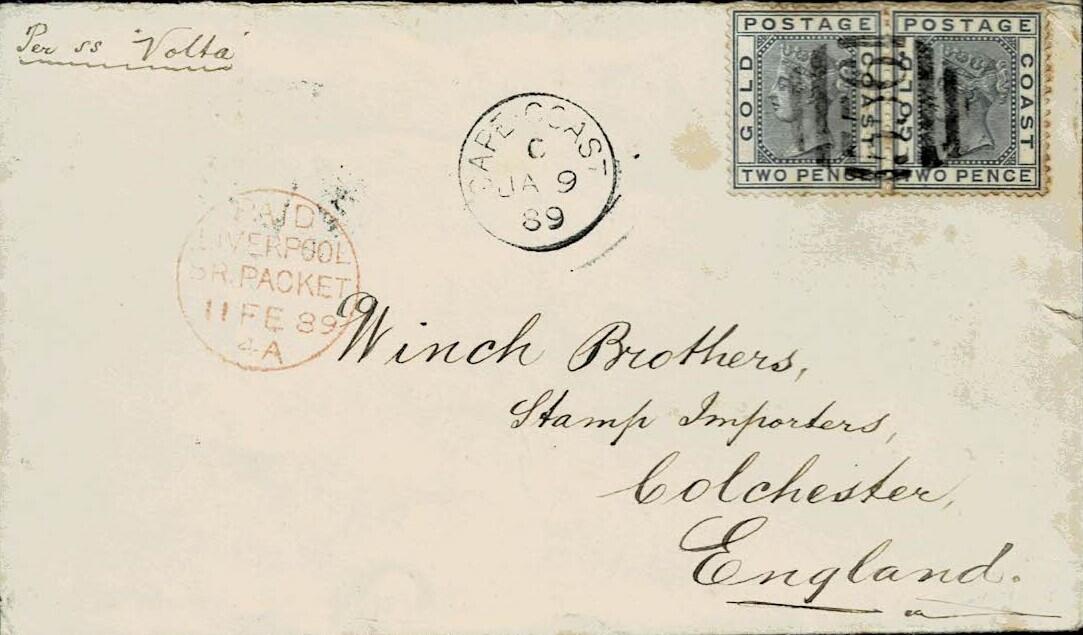 Per ss "Volta"
POSTAGE
GOLD COAST
TWO PENCE
POSTAGE
GOLD COAST
TWO PENCE
CAPE COAST
C
JA 9
89
PAID
LIVERPOOL
BR. PACKET
11 FE 89
4A
Winch Brothers,
Stamp Importers,
Colchester,
England.